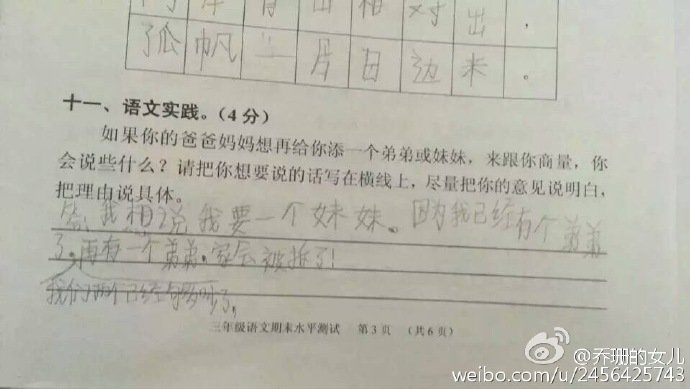 出 相 对 出 。
孤 帆 一 片 日 边 来 。
十一、语文实践。(4分)
如果你的爸爸妈妈想再给你添一个弟弟或妹妹，来跟你商量，你
会说些什么？请把你想要说的话写在横线上，尽量把你的意见说明白，
把理由说具体。
答我想说我要一个妹妹。因为我已经有个弟弟
了。再有一个弟弟，家会被拆了！
我们两个已经够多吵了，
三年级语文期末水平测试 第3页 (共6页)
@乔珊的女儿
weibo.com/u/2456425743